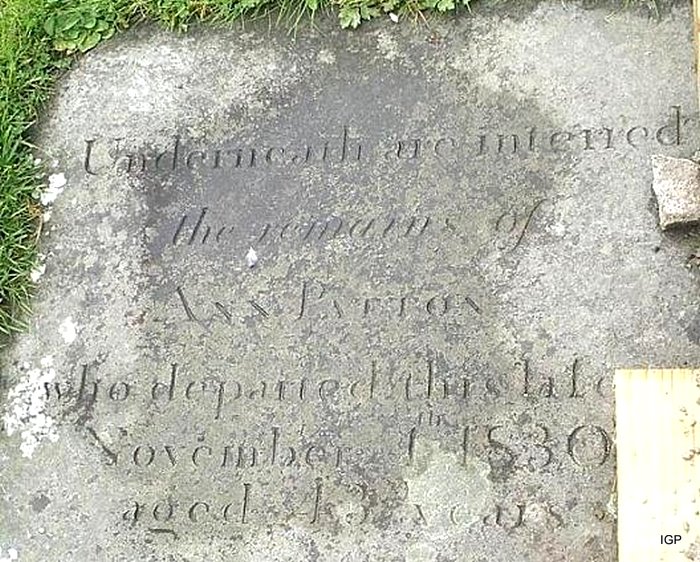 Underneath are interred
the remains of
Ann
who departed this life
November 1830
aged 43 years
IGP